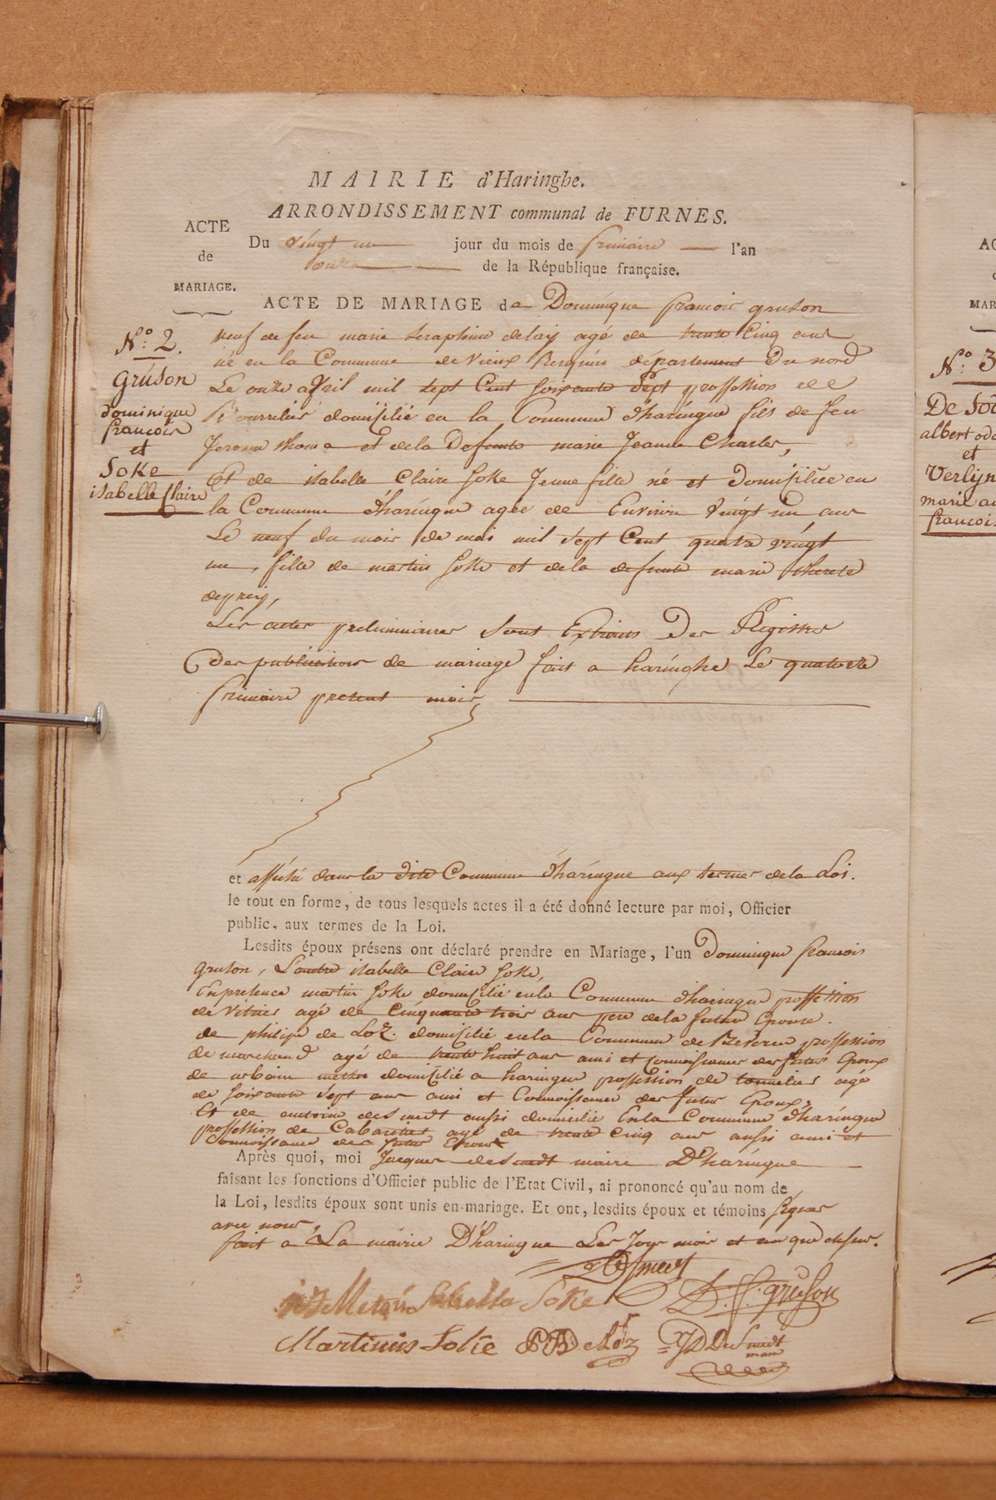 MAIRIE d'Haringhe.
ARRONDISSEMENT communal de FURNES.
ACTE
de
MARIAGE.
Du Vingt un jour du mois de frimaire l'an
Douze de la République française.
ACTE DE MARIAGE de Dominique francois gruson
N.º 2.
Gruson
dominique
francois
et
Soke
isabelle Claire
veuf de feu marie seraphine delay agé de trente Cinq ans
né en la Commune de vieux Berquin departement Du nord
Le onze avril mil sept Cent soixante sept profession de
Bourrelier domicilié en la Commune d'haringue fils de feu
et de la Defunte marie Jeanne Charles,
Et de isabelle Claire Soke Jeune fille né et Domiciliée en
la Commune d'haringue agée de Environ Vingt un ans
Le neuf du mois de mai mil sept Cent quatre vingt
un, fille de martin Soke et de la defunte marie therese
Les actes preliminaires sont Extraits Des Registres
Des publications de mariage fait a haringhe Le quatorze
frimaire present mois
et affiché dans la dite Commune d'haringue aux termes de la Loi.
le tout en forme, de tous lesquels actes il a été donné lecture par moi, Officier
public, aux termes de la Loi.
Lesdits époux présens ont déclaré prendre en Mariage, l'un Dominique francois
gruson, L'autre isabelle Claire Soke,
En presence martin Soke domicilié en la Commune d'haringue profession
de Vitrier agé de cinquante trois ans pere de la futur Epouse.
de philipe de Loz. domicilié en la Commune de profession
de marchand agé de trente huit ans ami et connoissance des futur Epoux
de urbain domicilié a haringue profession de tonnelier agé
de soixante sept ans ami et Connoissance des futur Epoux,
Et de antoine desmedt aussi domicilié En la Commune d'haringue
profession de Cabaretier agé de trente Cinq ans aussi ami et
connoissance des futur Epoux
Après quoi, moi Jacques desmedt maire D'haringue
faisant les fonctions d'Officier public de l'Etat Civil, ai prononcé qu'au nom de
la Loi, lesdits époux sont unis en mariage. Et ont, lesdits époux et témoins signés
avec nous,
fait a La mairie D'haringue Les Jour mois et an que dessus.
Desmedt
Isabella Soke D. f. gruson
Martinus Sokie de Loz J D De Smedt
maire
N.º 3
albert
et
Verlyn
francois